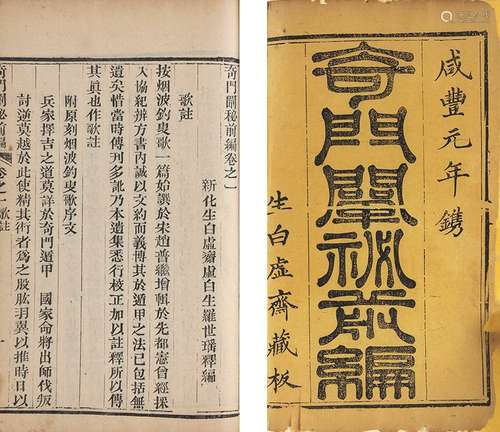 咸豐元年鐫
奇門闡秘前編
生白虛齋藏板
奇門闡秘前編卷之一
新化生白虛齋虛白生羅世瑤釋編
歌註
按烟波釣叟歌一篇始譔於宋趙普繼增輯於先都憲曾經採
入協紀辨方書內誠以文約而義博其於遁甲之法已包括無
遺矣惜當時傳刊多訛乃本遺集悉行校正加以註釋所以傳
其眞也作歌註
附原刻烟波釣叟歌序文
兵家擇吉之道莫詳於奇門遁甲　國家命將出師伐叛
討逆莫越於此使精其術者爲之股肱羽翼以推時日以
奇門闡秘前編
卷之一
歌註
一